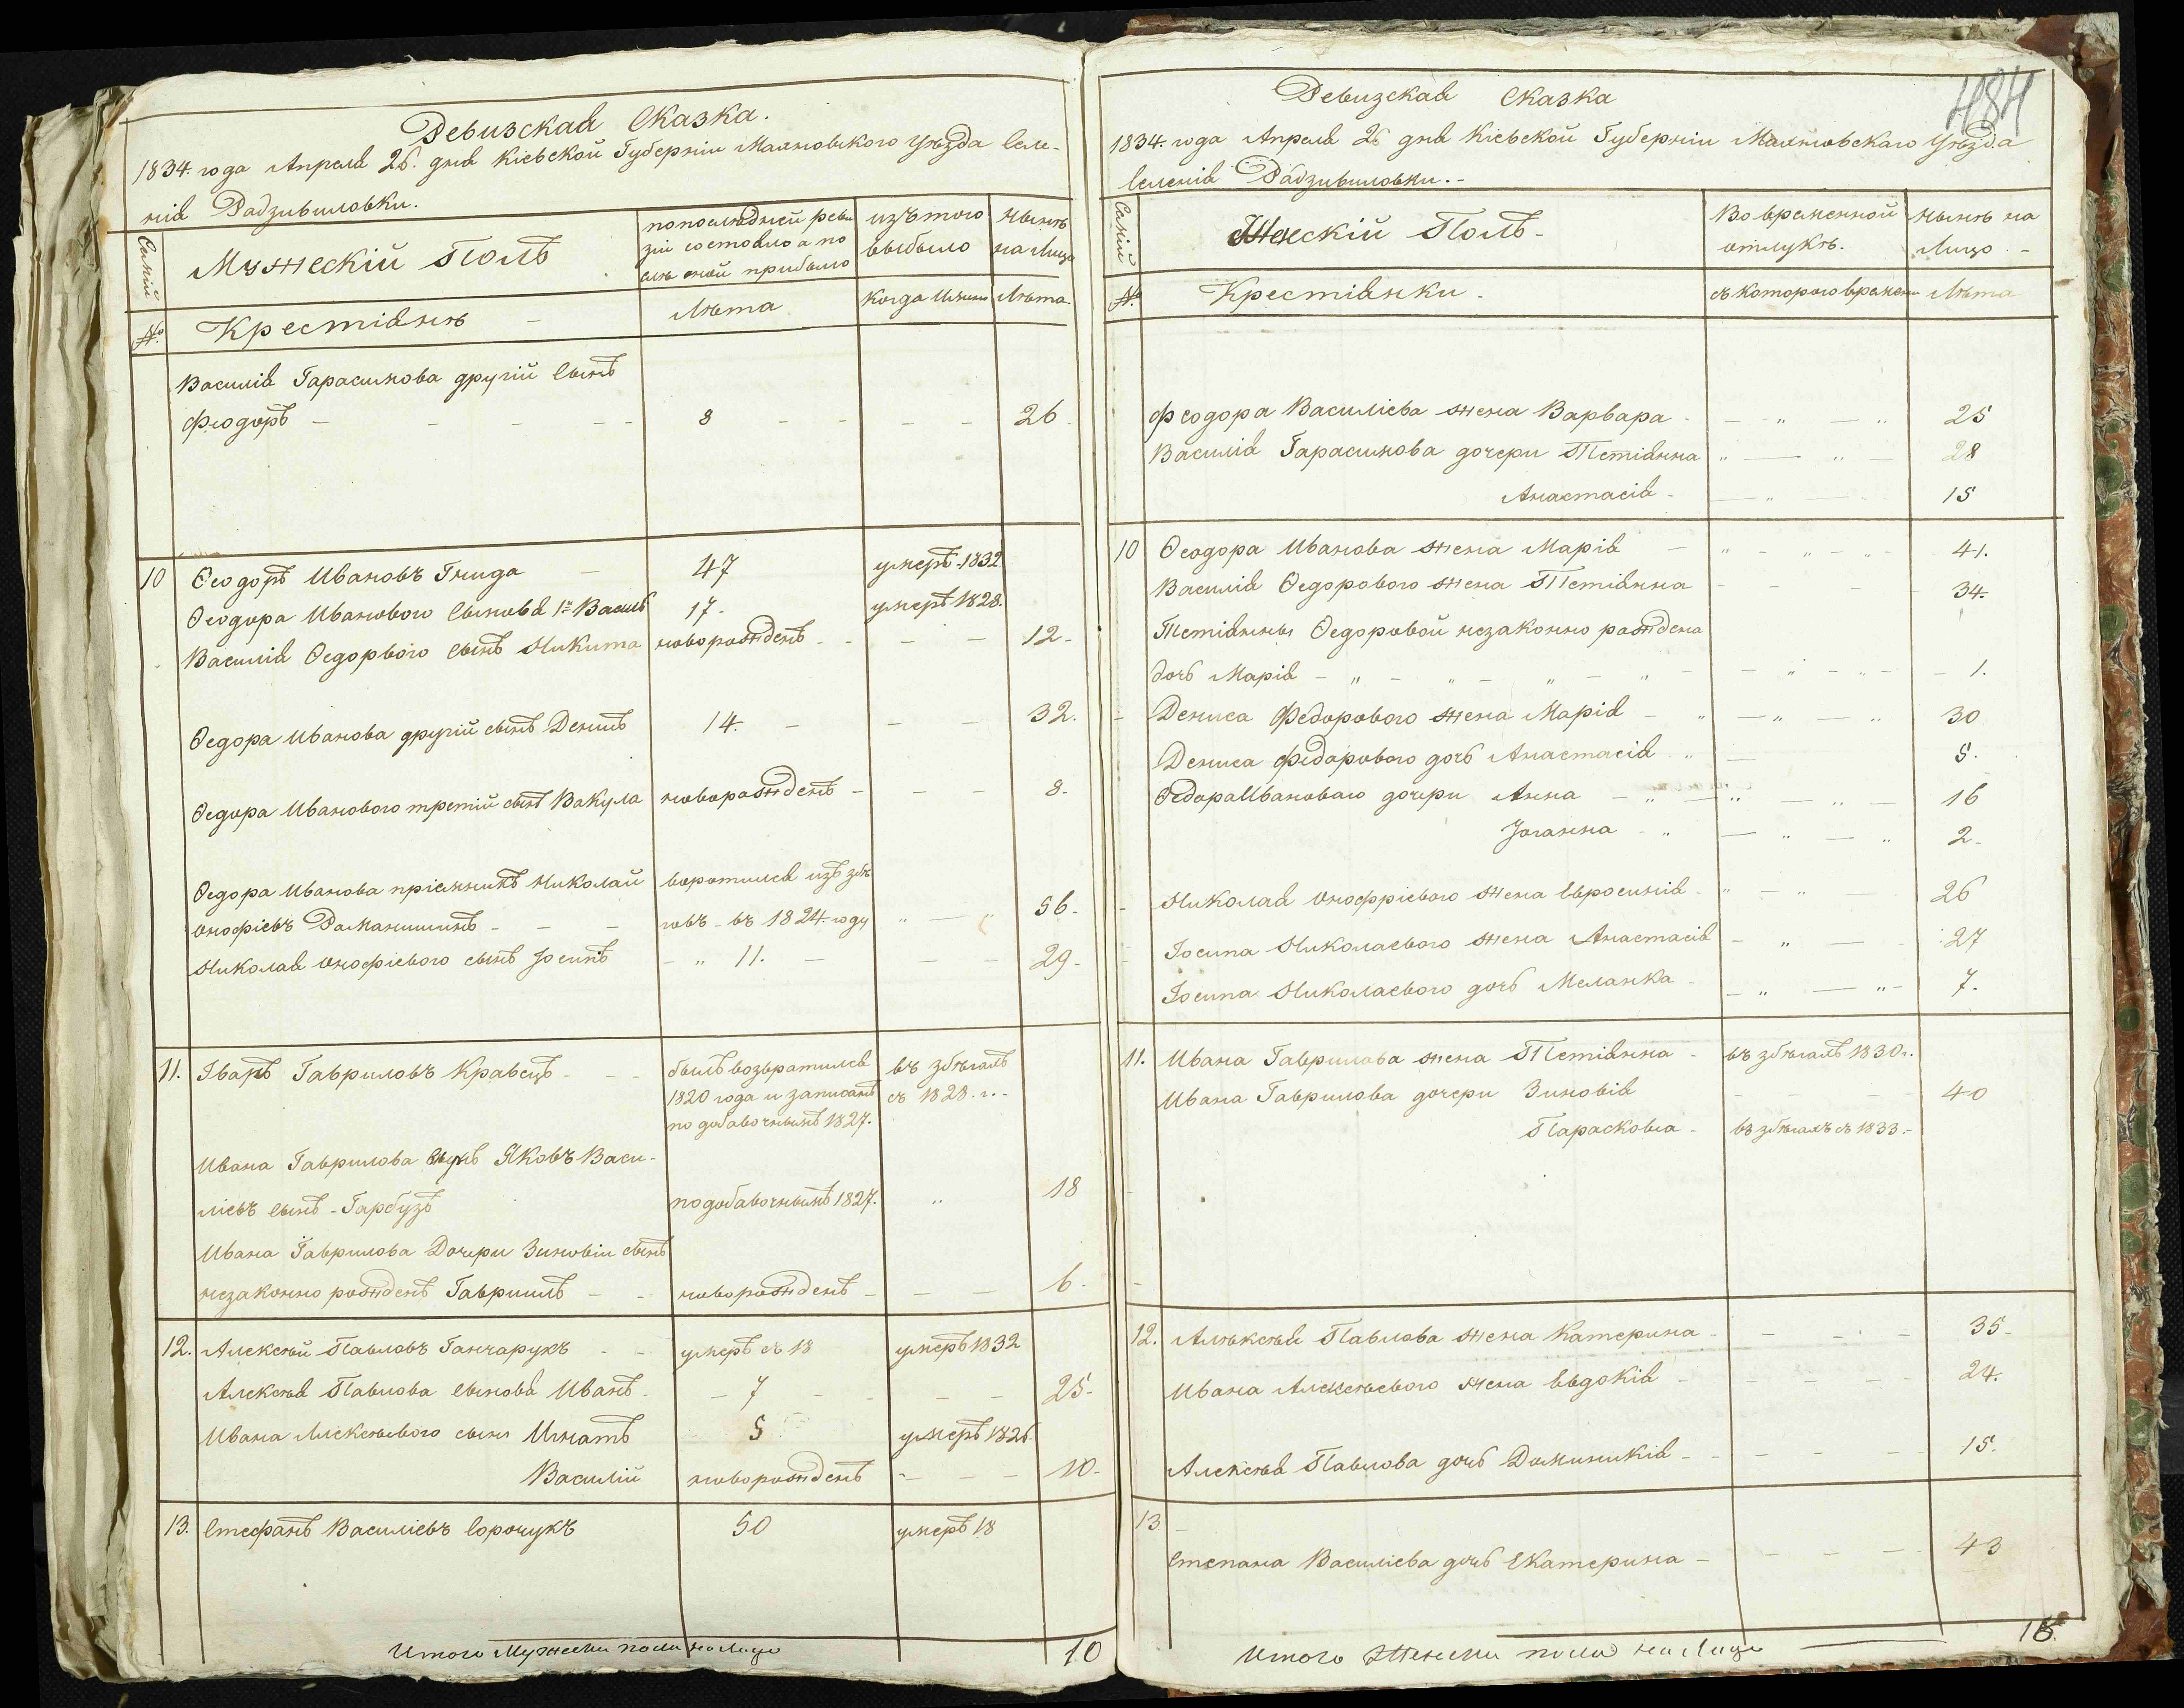 Ревизская Сказка.
1834. года Апреля 26. дня Кіевской Губерніи Махновского уѣзда Селе-
нія Радзивиловки.
Семіи
Мужескій Полъ
по последней реви
зіи состояло а по
слѣ оной прибыло
изъ того
выбыло
Нынѣ
на Лицо
№
Крестіянѣ
Лѣта
Когда имянно
Лѣта.
Василія Гарасимова другій Сынъ
Феодоръ - 8 - - - 26.
10 Ѳеодоръ Ивановъ Гнида - 47 умеръ 1832
Ѳеодора Иванового Сыновья 1й Василь 17. умеръ 1828.
Василія Ѳедорвого сынъ Никита новорожденъ - - - 12.
Ѳедора Иванова другій сынъ Денисъ 14. - - - 32.
Ѳедора Иванового третій сынъ Вакула новорожденъ - - - 8.
Ѳедора Иванова пріемникъ Николай воротился изъ збѣ
Онофріевъ Романишинъ - - - говъ - въ 1824. году " — " 56.
Николая Онофріевого сынъ Іосипъ - " 11. - - - 29.
11. Іванъ Гавриловъ Кравецъ - - - былъ возвратился въ збѣгахъ
1820 года и записанъ съ 1828. г. -
по добавочнымъ 1827.
Ивана Гаврилова внукъ Яковъ Васи-
ліевъ сынъ - Гарбузъ по добавочнымъ 1827. " 18
Ивана Гаврилова Дочери Зиновіи сынъ
незаконно рожденъ Гавриилъ - - новорожденъ - - - 6.
12. Алексѣй Павловъ Ганчарукъ - - умеръ съ 18 умеръ 1832
Алексѣя Павлова Сыновья Иванъ - - 7 - - - 25-
Ивана Алексѣевого сыны Игнатъ 5 умеръ 1826.
Василій новорожденъ - - - 10-
13. Стефанъ Василіевъ Сорочукъ 50 умеръ 18
Итого Мужеска пола на Лицо 10
484
Ревизская Сказка
1834. года Апреля 26 дня Кіевской Губерніи Махновскаго Уѣзда
Селенія Радзивиловки. -
Семіи
Женскій Полъ -
Во временной
отлукѣ.
Нынѣ на
Лицо. -
№.
Крестіянки.
съ которого времени
Лѣта
Феодора Василіева жена Варвара - - " — " 25
Василія Гарасимова дочери Тетіянна " — " — 28
Анастасія - — " — 15
10 Ѳеодора Иванова жена Марія - " - " - " - 41.
Василія Ѳедорового жена Тетіянна - - - - 34.
Тетіянны Ѳедоровой незаконно рождена
дочь Марія - " - " - " - " - - " - " - - 1.
- Дениса Федорового жена Марія - " — " — " 30
Дениса Федорового дочь Анастасія " — 5.
Ѳедора Ивановаго дочери Анна - " — " — " — 16
Іоганна - " — " — " 2.
- Николая Онофріевого жена Евросинія - " — " — 26
- Іосипа Николаевого жена Анастасія - " — - 27
Іосипа Николаевого дочь Меланка - - " — " - 7.
11. Ивана Гаврилова жена Тетіянна - въ збѣгахъ 1830 г.
Ивана Гаврилова дочери Зиновія - - - 40
Парасковія - въ збѣгахъ съ 1833. -
12. Алѣксѣя Павлова жена Катерина - - - - 35-
Ивана Алексѣевого жена Евдокія - - - - 24.
Алексѣя Павлова дочь Доминикія - - - - 15.
13 -
Степана Василіева дочь Екатерина - - - - 43
Итого Женска пола на Лицо —